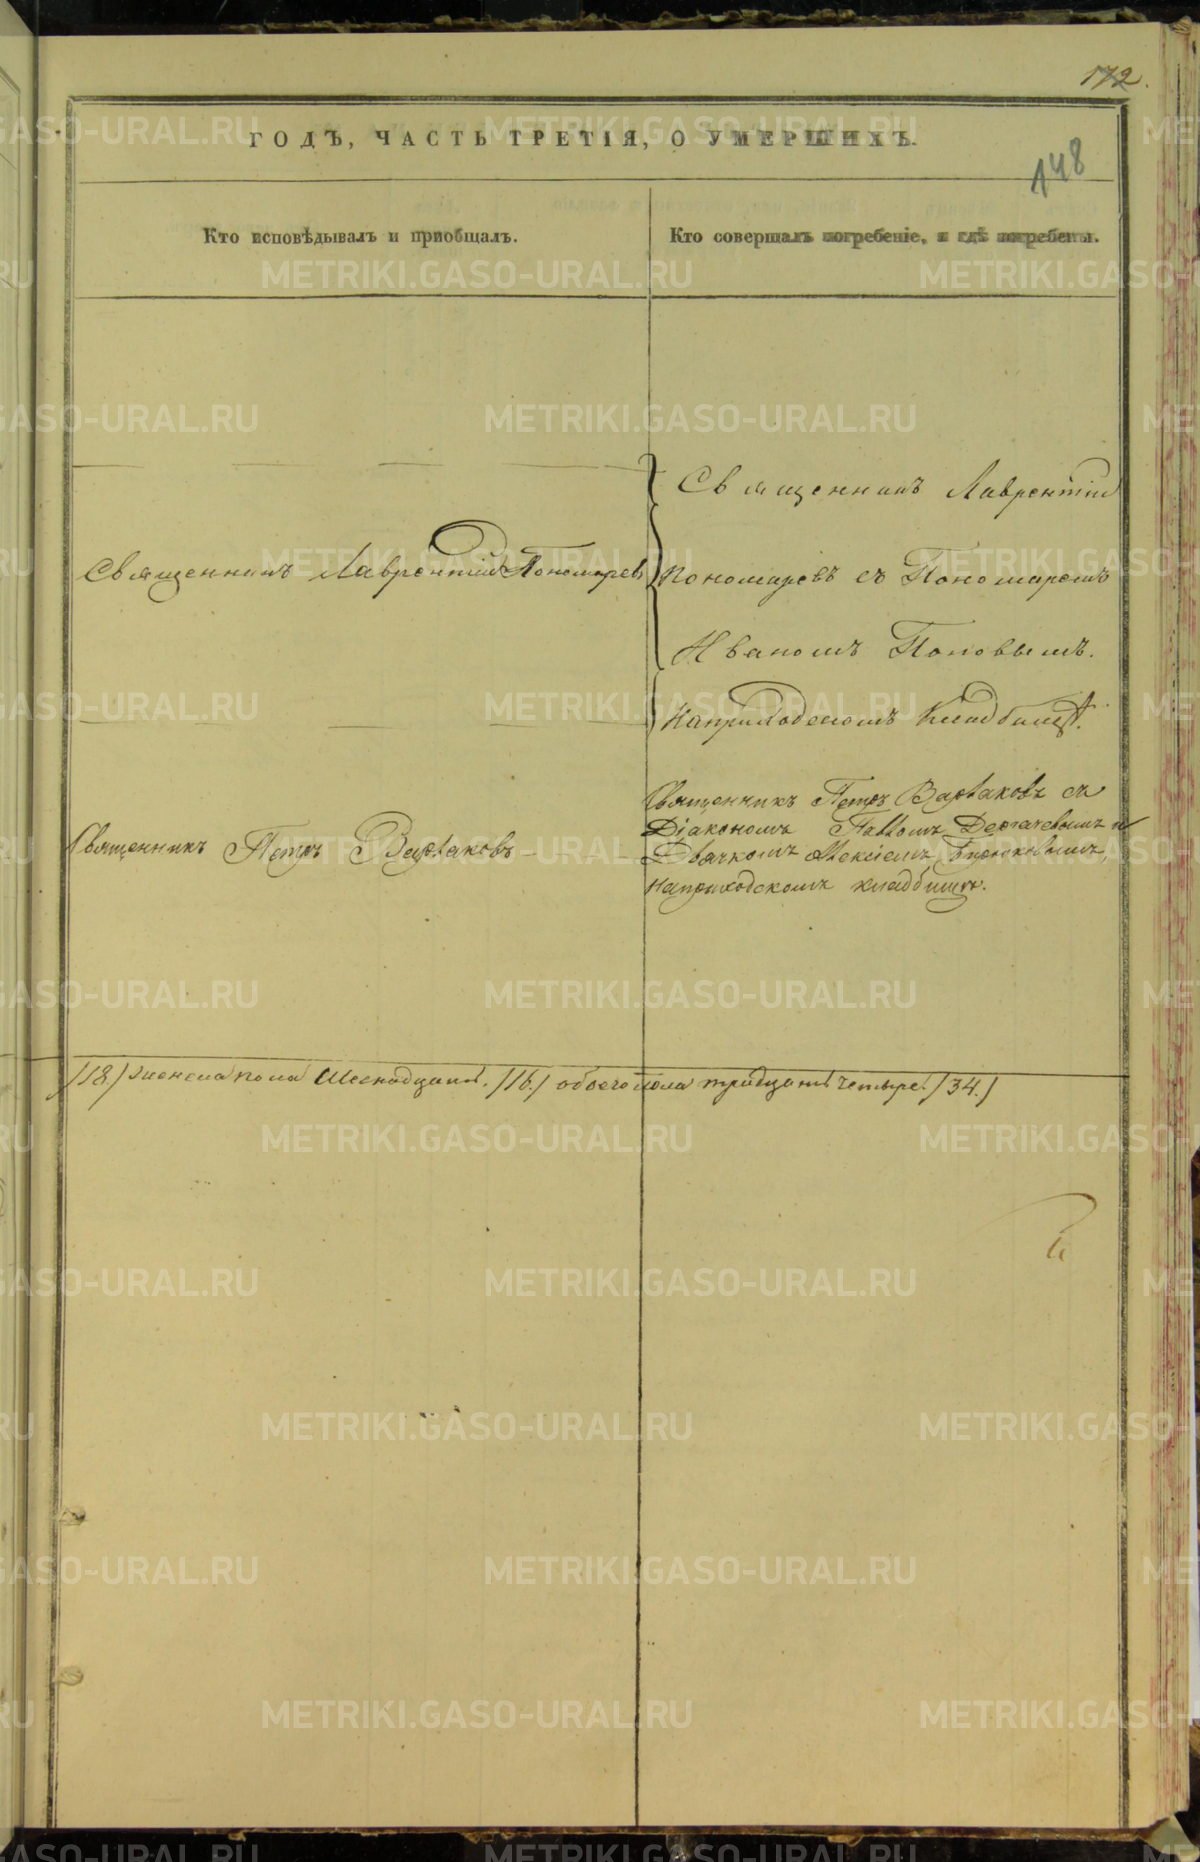 172.
ГОДЪ, ЧАСТЬ ТРЕТІЯ, О УМЕРШИХЪ.
148
Кто исповѣдывалъ и пріобщалъ.
Кто совершалъ погребеніе, и гдѣ погребены.
Священникъ Лаврентій
Священникъ Лаврентій Пономаревъ
Пономаревъ съ Пономаремъ
Иваномъ Поповымъ.
На приходскомъ кладбищѣ.
Священникъ Петръ Варваковъ съ
Діакономъ Павломъ Дерягевымъ и
Священникъ Петръ Варваковъ
Дьячкомъ Алексіемъ Бирюковымъ,
На приходскомъ кладбищѣ.
/18./ женска пола Шеснадцать. /16./ обоего пола тридцать четыре. /34./
METRIKI.GASO-URAL.RU